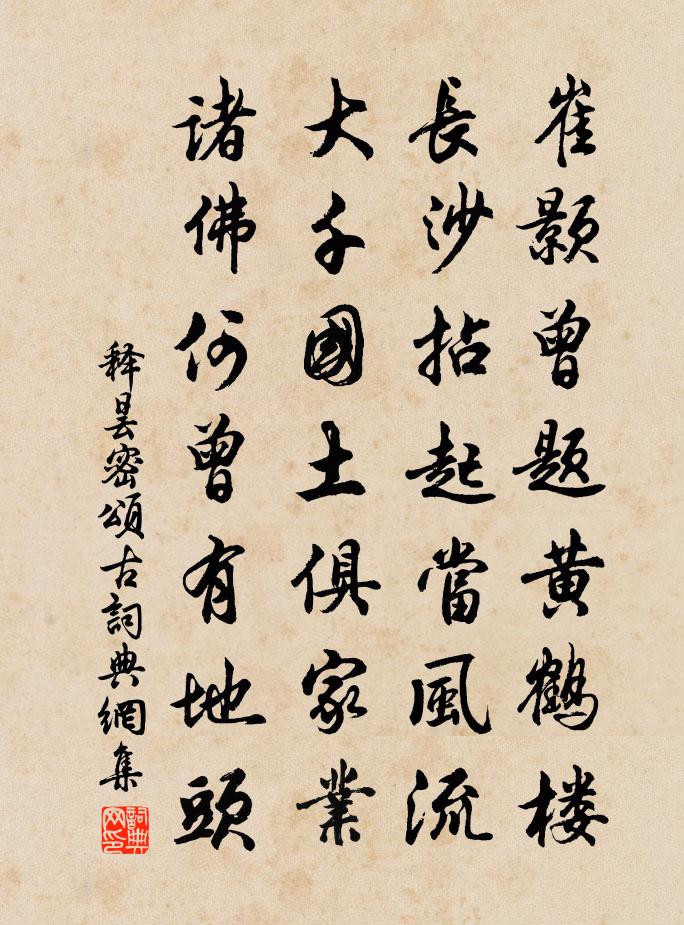 崔颢曾題黄鶴楼
長沙拈起當風流
大千國土俱家業
诸佛何曾有地頭
释曇密頌古詞典網集
詞典网印